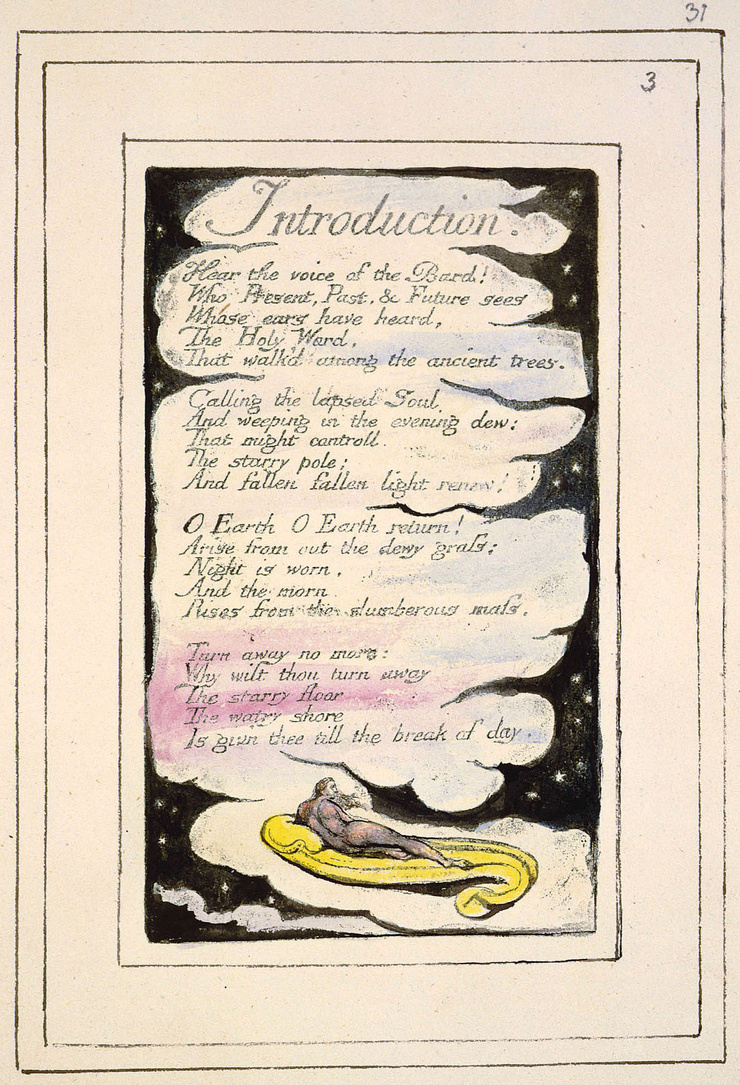 31
3
Introduction.
Hear the voice of the Bard!
Who Present, Past, & Future sees
Whose ears have heard,
The Holy Word,
That walk'd among the ancient trees.
Calling the lapsed Soul
And weeping in the evening dew:
That might controll.
The starry pole;
And fallen fallen light renew!
O Earth O Earth return!
Arise from out the dewy graſs;
Night is worn,
And the morn
Rises from the slumberous maſs.
Turn away no more:
Why wilt thou turn away
The starry floor
The watry shore
Is giv'n thee till the break of day.